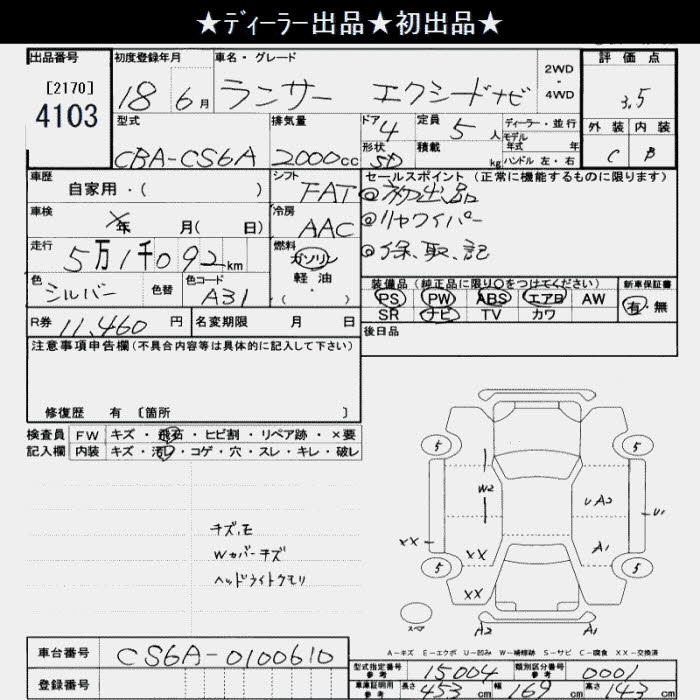 ★ディーラー出品★初出品★
出品番号
[2170]
4103
初度登録年月
18 6月
車名・グレード
ランサー エクシードナビ
2WD
・
4WD
評価点
3.5
外装 内装
C B
型式
CBA-CS6A
排気量
2000cc
ドア 4
形状 5D
定員 5人
積載 kg
ディーラー・並行
モデル
年式 年
ハンドル 左・右
車歴
自家用・( )
シフト
FAT
セールスポイント (正常に機能するものに限ります)
◎初出品
◎リヤワイパー
◎保、取、記
車検
年 月( 日)
冷房
AAC
走行
5万1千092km
燃料
ガソリン
軽油
( ・ )
色
シルバー
色替
色コード
A31
装備品 (純正品に限り○をつけてください)
PS PW ABS エアロ AW
SR ナビ TV カワ
新車保証書
有・無
R券 11,460円
名変期限 月 日
後日品
注意事項申告欄(不具合内容等は具体的に記入して下さい)
修復歴 有 [箇所 ]
検査員
記入欄
FW キズ・飛石・ヒビ割・リペア跡・×要
内装 キズ・汚レ・コゲ・穴・スレ・キレ・破レ
キズ、モ
Wカバーキズ
ヘッドライトクモリ
5 5
W2 UA2 U1
XX XX A1
5 5
XX
スペア
A2 A1
A-キズ E-エクボ U-凹み W-補修跡 S-サビ C-腐食 XX-交換済
車台番号
CS6A-0100610
登録番号
型式指定番号
参考
15004
類別区分番号
参考
0001
車庫証明用
参考
長さ 453cm 幅 169cm 高さ 143cm